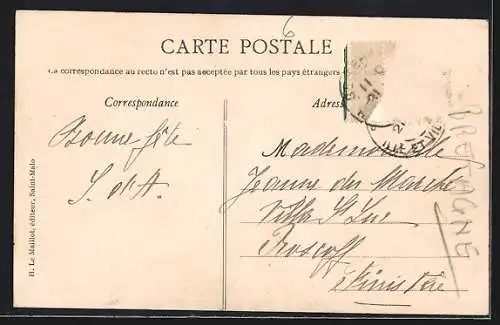 6
CARTE POSTALE
La correspondance au recto n'est pas acceptée par tous les pays étrangers
Correspondance
Adres
Bonne fête
S. d'A.
Mademoiselle
Jeanne du
Villa St Luc
Roscoff
Finistère
ILLE-ET-VIL
BRETAGNE
H. Le Maillot, éditeur, Saint-Malo